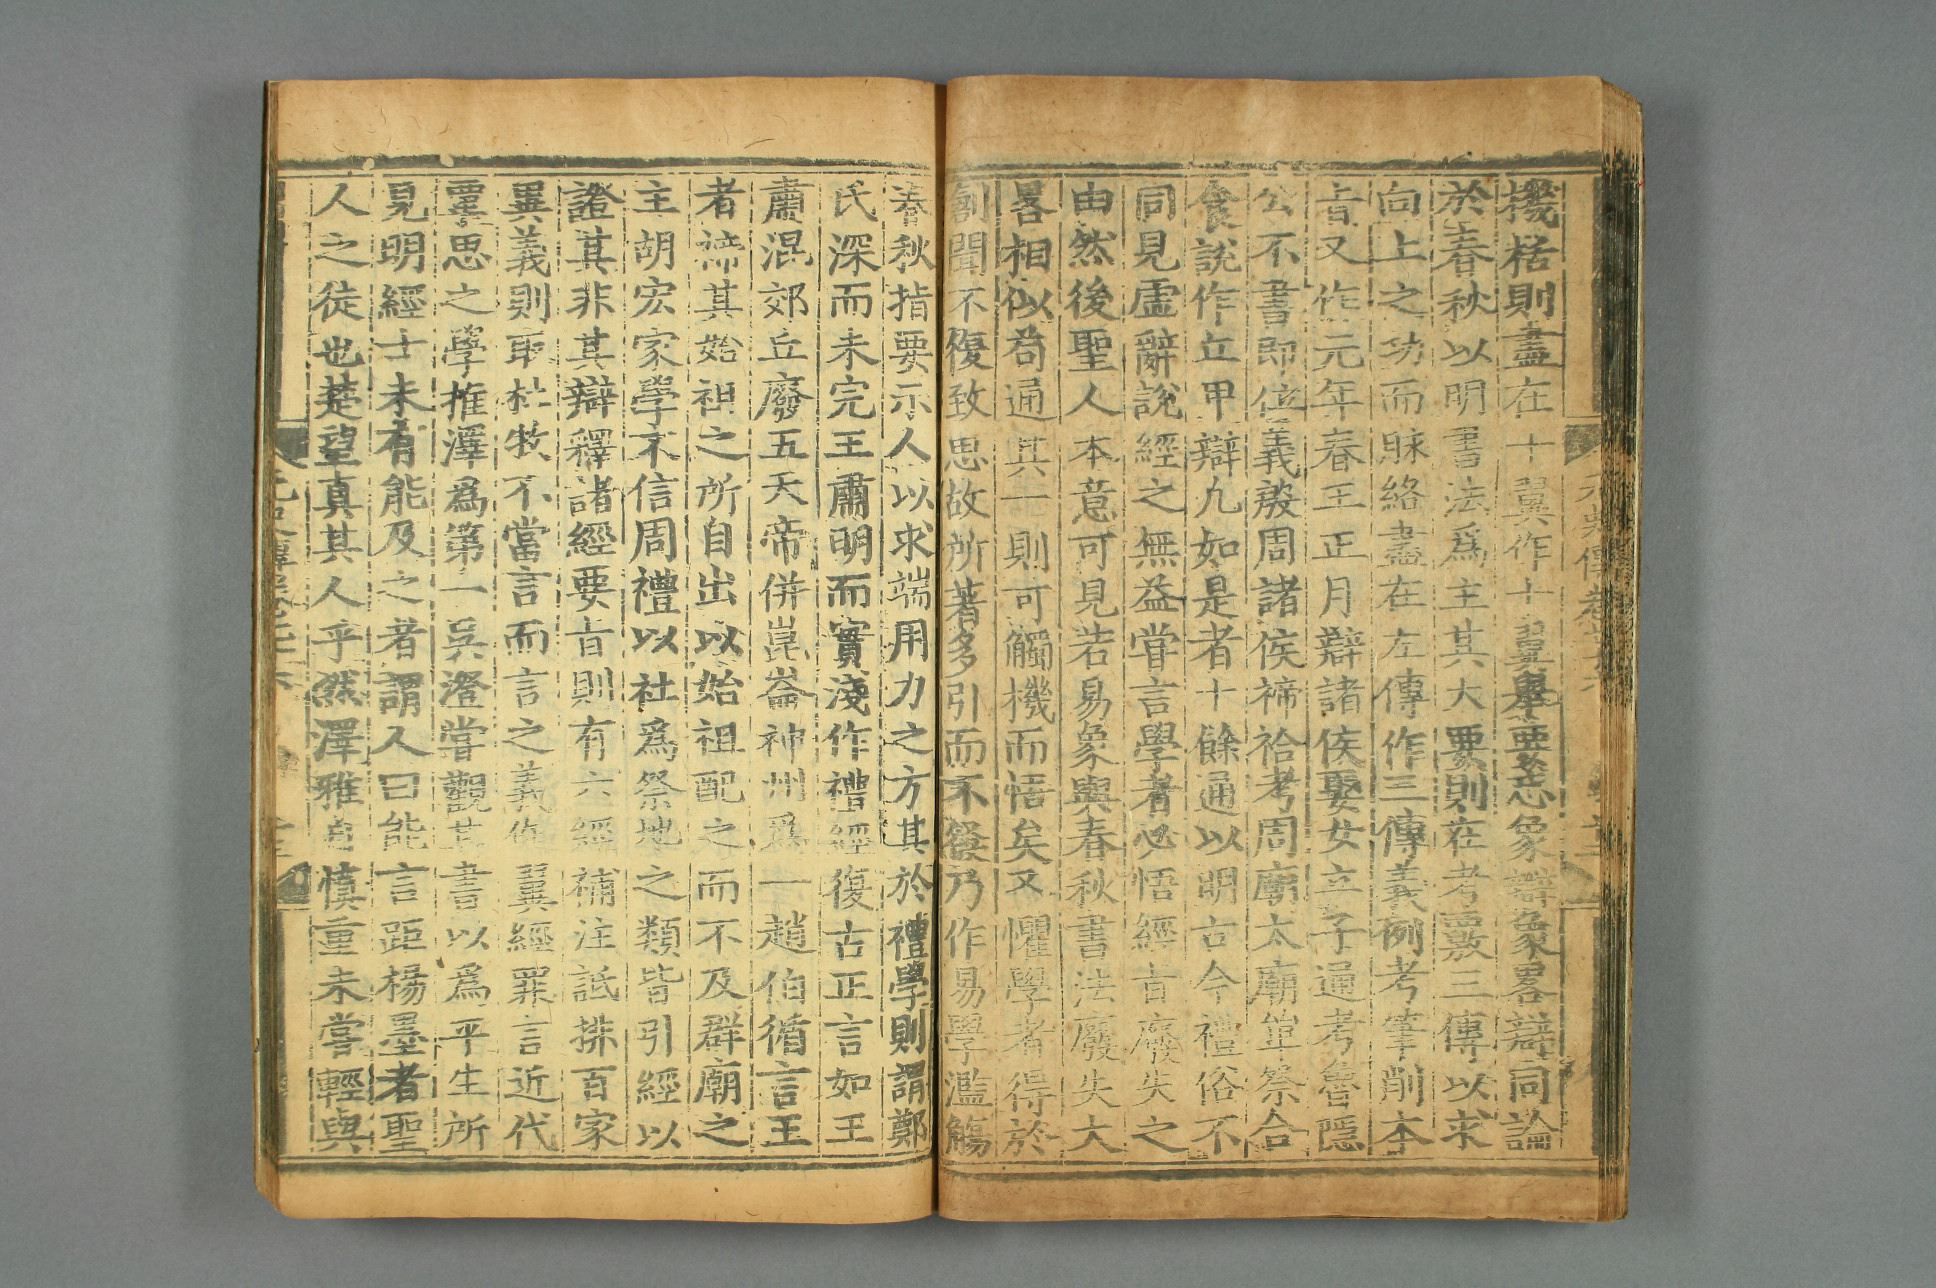 機栝則盡在十翼作十翼舉要忘象辯象畧辯同論
於春秋以明書法爲主其大要則在考覈三傳以求
向上之功而脉絡盡在左傳作三傳義例考筆削本
旨又作元年春王正月辯諸侯娶女立子通考魯隱
公不書即位義殷周諸侯禘祫考周廟太廟單祭合
食說作丘甲辯凡如是者十餘通以明古今禮俗不
同見虛辭說經之無益嘗言學者必悟經旨廢失之
由然後聖人本意可見若易象與春秋書法廢失大
畧相似苟通其一則可觸機而悟矣又懼學者得於
創聞不復致思故所著多引而不發乃作易學濫觴
春秋指要示人以求端用力之方其於禮學則謂鄭
氏深而未完王肅明而實淺作禮經復古正言如王
肅混郊丘廢五天帝併崑崙神州爲一趙伯循言王
者禘其始祖之所自出以始祖配之而不及群廟之
主胡宏家學不信周禮以社爲祭地之類皆引經以
證其非其辯釋諸經要旨則有六經補注詆排百家
異義則取杜牧不當言而言之義作翼經罪言近代
覃思之學推澤爲第一吳澄嘗觀其書以爲平生所
見明經士未有能及之者謂人曰能言距楊墨者聖
人之徒也楚望真其人乎然澤雅自慎重未嘗輕與